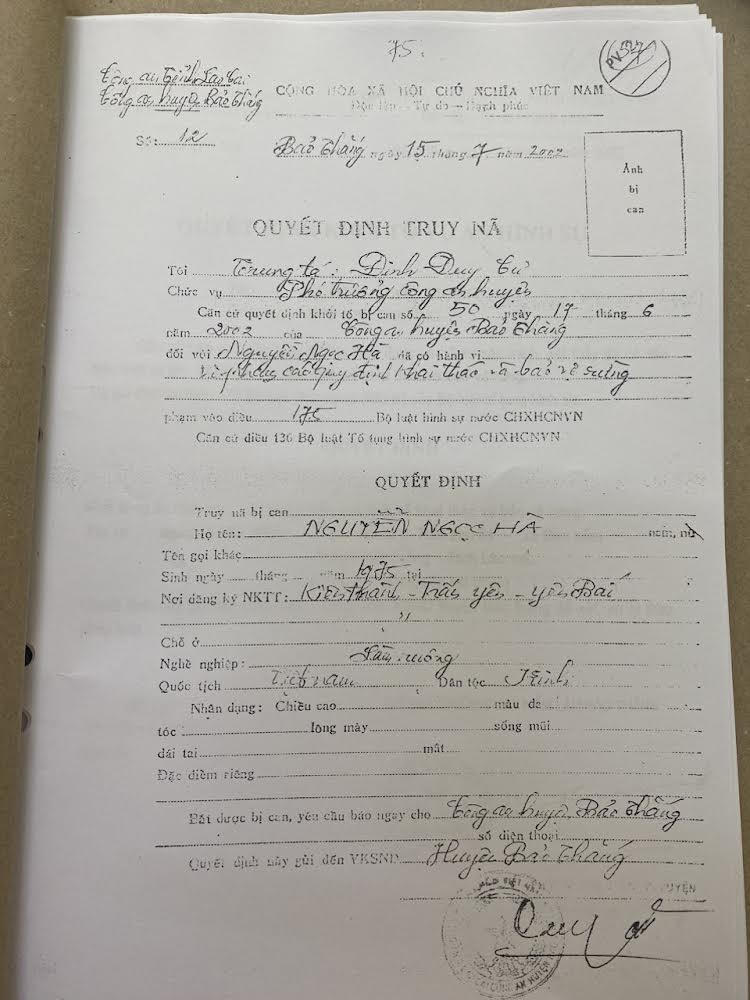 75.
PV327
Công an tỉnh Lao Cai
Công an huyện Bảo Thắng
CỘNG HÒA XÃ HỘI CHỦ NGHĨA VIỆT NAM
Độc lập - Tự do - Hạnh phúc
Số: 12
Bảo Thắng ngày 15 tháng 7 năm 2002
Ảnh
bị
can
QUYẾT ĐỊNH TRUY NÃ
Tôi Trung tá: Đinh Duy
Chức vụ Phó trưởng công an huyện
Căn cứ quyết định khởi tố bị can số 50 ngày 17 tháng 6
năm 2002 của Công an huyện Bảo Thắng
đối với Nguyễn Ngọc Hà đã có hành vi
Vi phạm các quy định khai thác và bảo vệ rừng
phạm vào điều 175 Bộ luật hình sự nước CHXHCNVN
Căn cứ điều 136 Bộ luật Tố tụng hình sự nước CHXHCNVN
QUYẾT ĐỊNH
Truy nã bị can
Họ tên: NGUYỄN NGỌC HÀ nam, nữ
Tên gọi khác
Sinh ngày tháng năm 1975 tại
Nơi đăng ký NKTT: Kiên Thành - Trấn yên - yên Bái
"
Chỗ ở
Nghề nghiệp: Làm ruộng
Quốc tịch Việt nam Dân tộc Kinh
Nhân dạng: Chiều cao màu da
tóc lông mày sống mũi
dái tai mắt
Đặc điểm riêng
Bắt được bị can, yêu cầu báo ngay cho Công an huyện Bảo Thắng
số điện thoại
Quyết định này gửi đến VKSND Huyện Bảo Thắng
HUYỆN